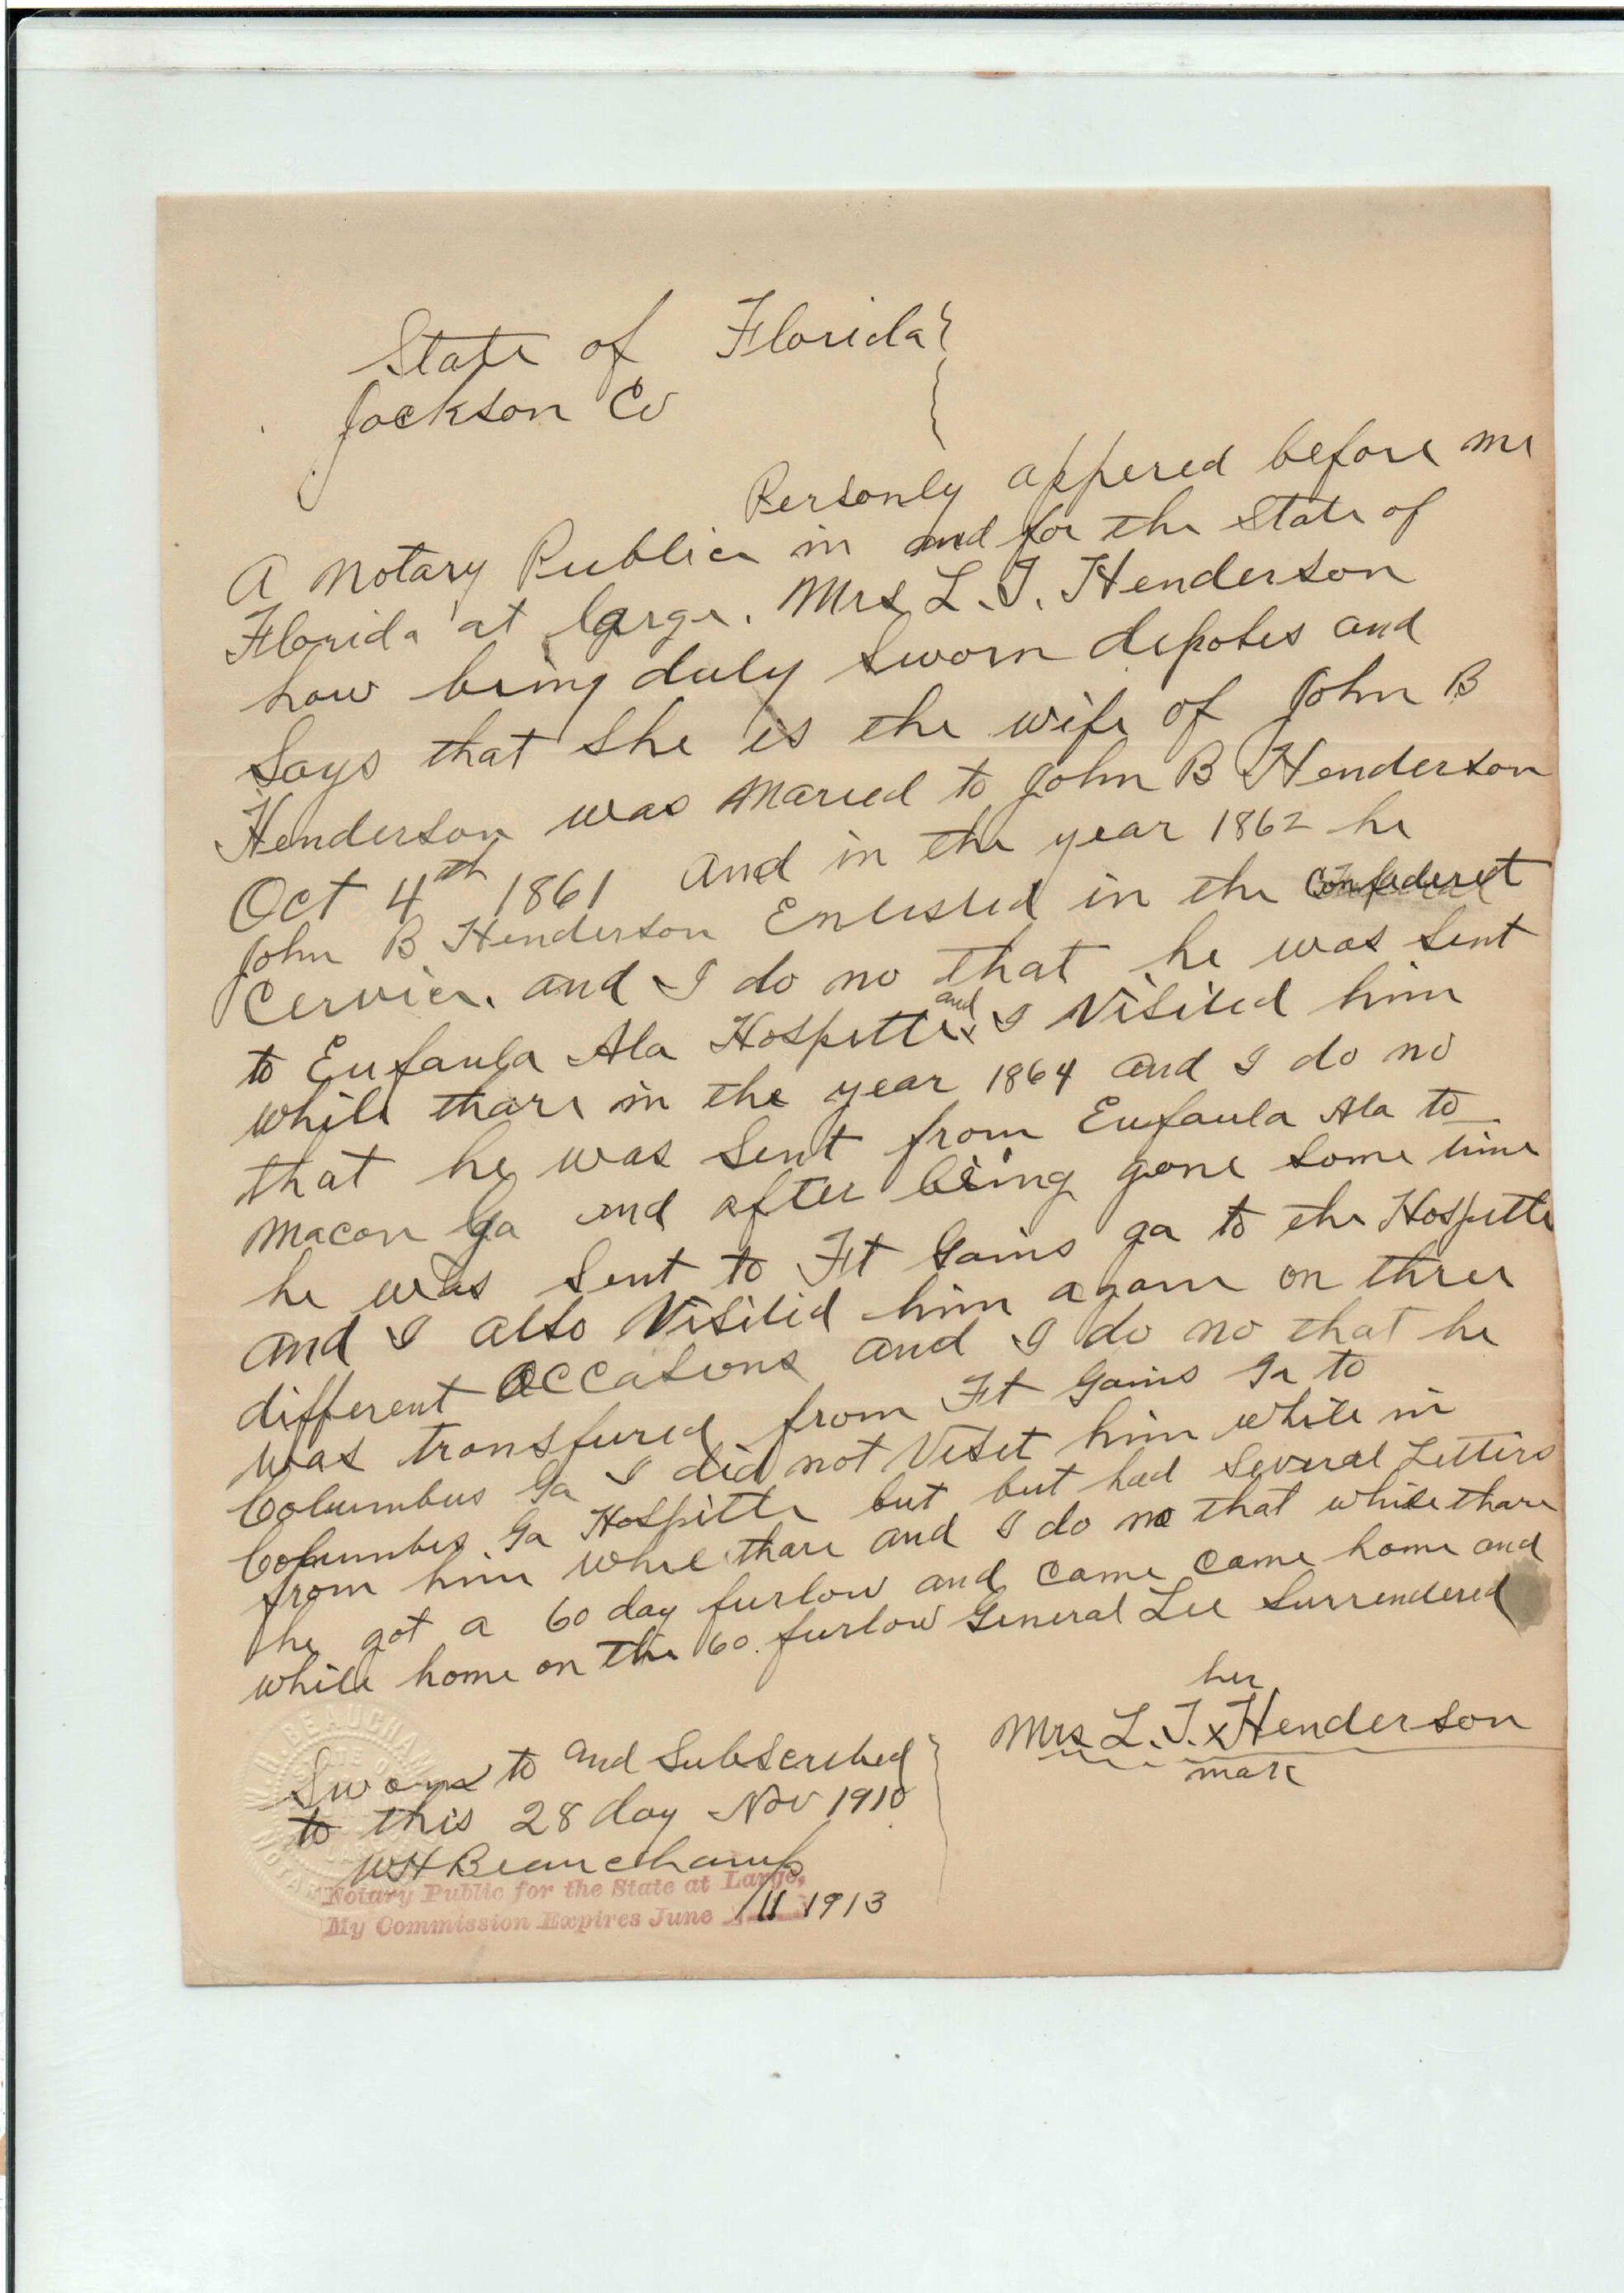 State of Florida }
Jackson Co }
Personly appered before me
A Notary Public in and for the State of
Florida at large. Mrs L. T. Henderson
how being duly Sworn deposes and
Says that She is the wife of John B
Henderson was Maried to John B Henderson
Oct 4th 1861 and in the year 1862 he
John B. Henderson Enlisted in the Confederet
Cervice. and I do no that he was Sent
to Eufaula Ala Hospittle and I Visited him
while thare in the year 1864 and I do no
that he was Sent from Eufaula Ala to
Macon Ga and after being gone some time
he was Sent to Ft Gains ga to the Hospittle
and I also Visitid him again on three
different occasions and I do no that he
was transfured from Ft Gains Ga to
Columbus Ga I did not Viset him while in
Columbus Ga Hospittle but but had Several Letters
from him while thare and I do no that while thare
he got a 60 day furlow and came came home and
while home on the 60. furlow General Lee Surrendered
her
Mrs L. T. x Henderson
mark
Sworn to and Subscribed }
to this 28 day Nov 1910
WH Beauchamp
Notary Public for the State at Large,
My Commission Expires June 11 1913
W.H. BEAUCHAMP
NOTARY